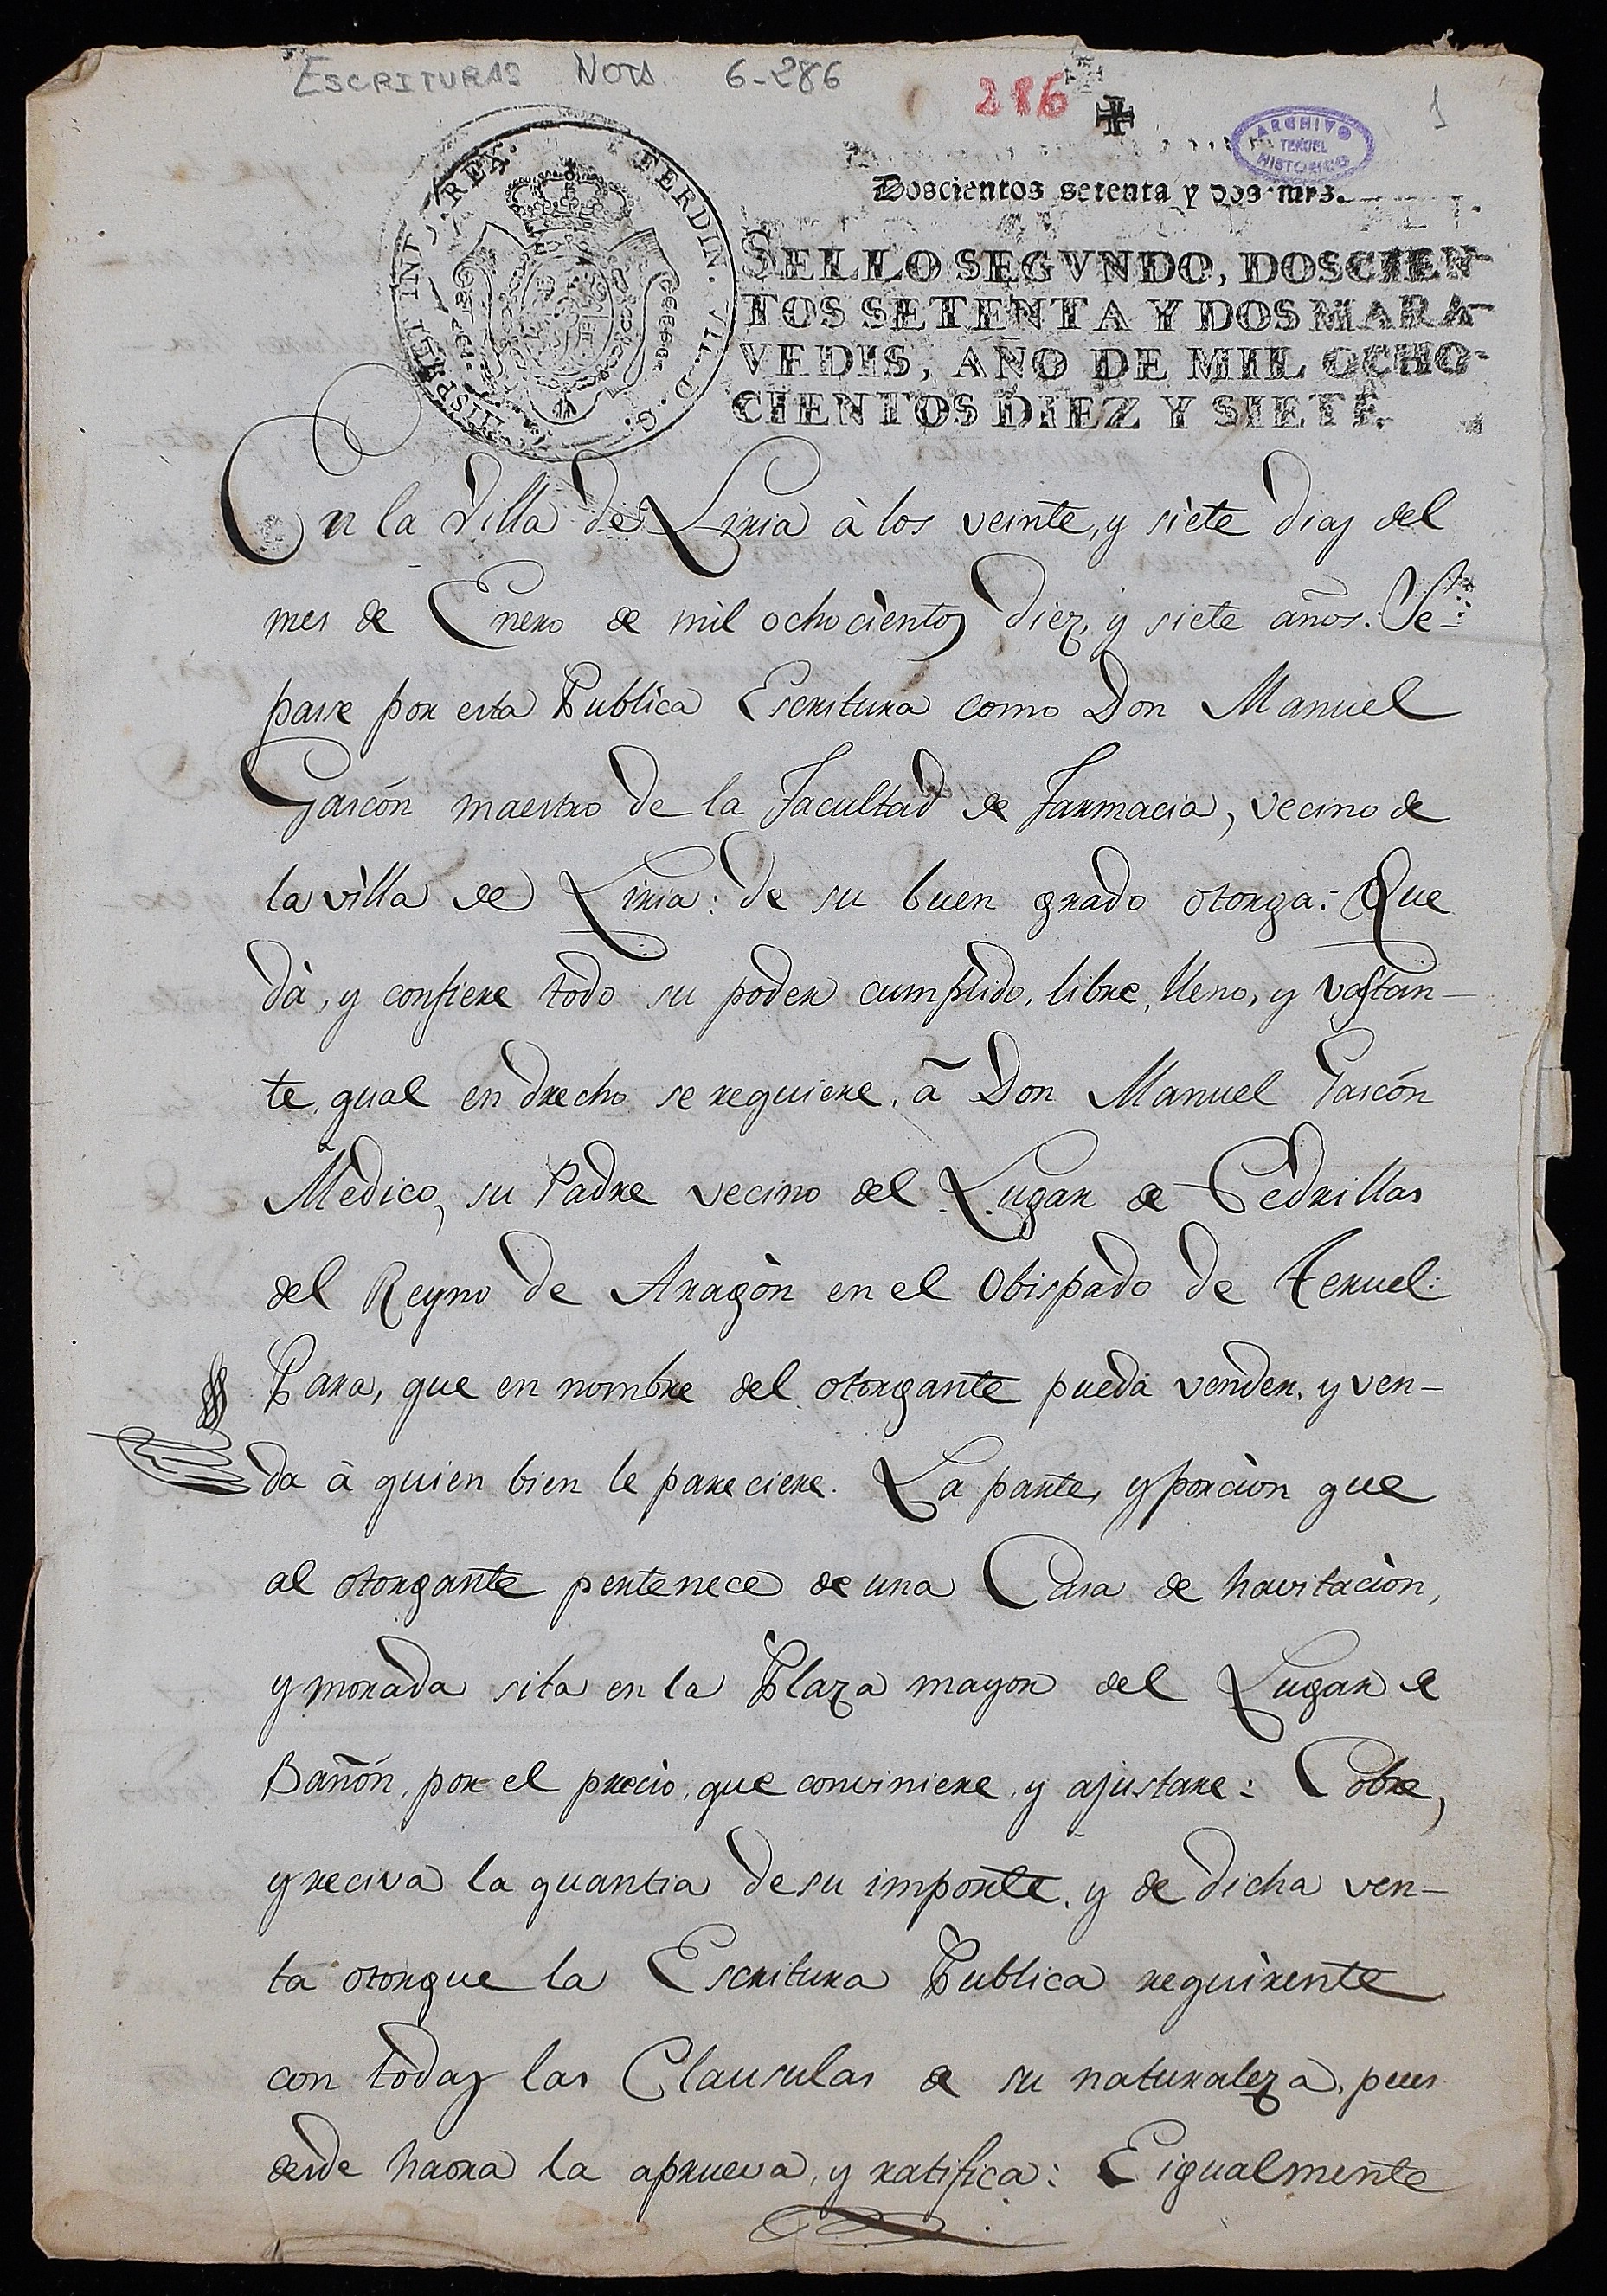 ESCRITURAS NOTS. 6-286
286
1
ARCHIVO
TERUEL
HISTORICO
Doscientos setenta y dos mrs.
FERDIN. VII. D. G. HISP. ET IND. REX.
SELLO SEGVNDO, DOSCIEN-
TOS SETENTA Y DOS MARA-
VEDIS, AÑO DE MIL OCHO-
CIENTOS DIEZ Y SIETE.
En la Villa de Liria à los veinte, y siete dias del
mes de Enero de mil ochocientos diez, y siete años. Se-
pase por esta Publica Escritura como Don Manuel
Gascón maestro de la Facultad de Farmacia, vecino de
la villa de Liria: de su buen grado otorga: Que
dà, y confiere todo su poder cumplido, libre, lleno, y vastan-
te, qual en drecho se requiere, à Don Manuel Gascón
Mèdico, su Padre vecino del Lugar de Cedrillas
del Reyno de Aragòn en el Obispado de Teruel:
Para, que en nombre del otorgante pueda vender, y ven-
da à quien bien le pareciere. La parte, y porciòn que
al otorgante pertenece de una Casa de havitaciòn,
y morada sita en la Plaza mayor del Lugar de
Bañón, por el precio, que conviniere, y ajustare: Cobre,
y reciva la quantia de su importe, y de dicha ven-
ta otorgue la Escritura Publica requirente
con todas las Clausulas de su naturaleza, pues
desde haora la aprueva, y ratifica: E igualmente